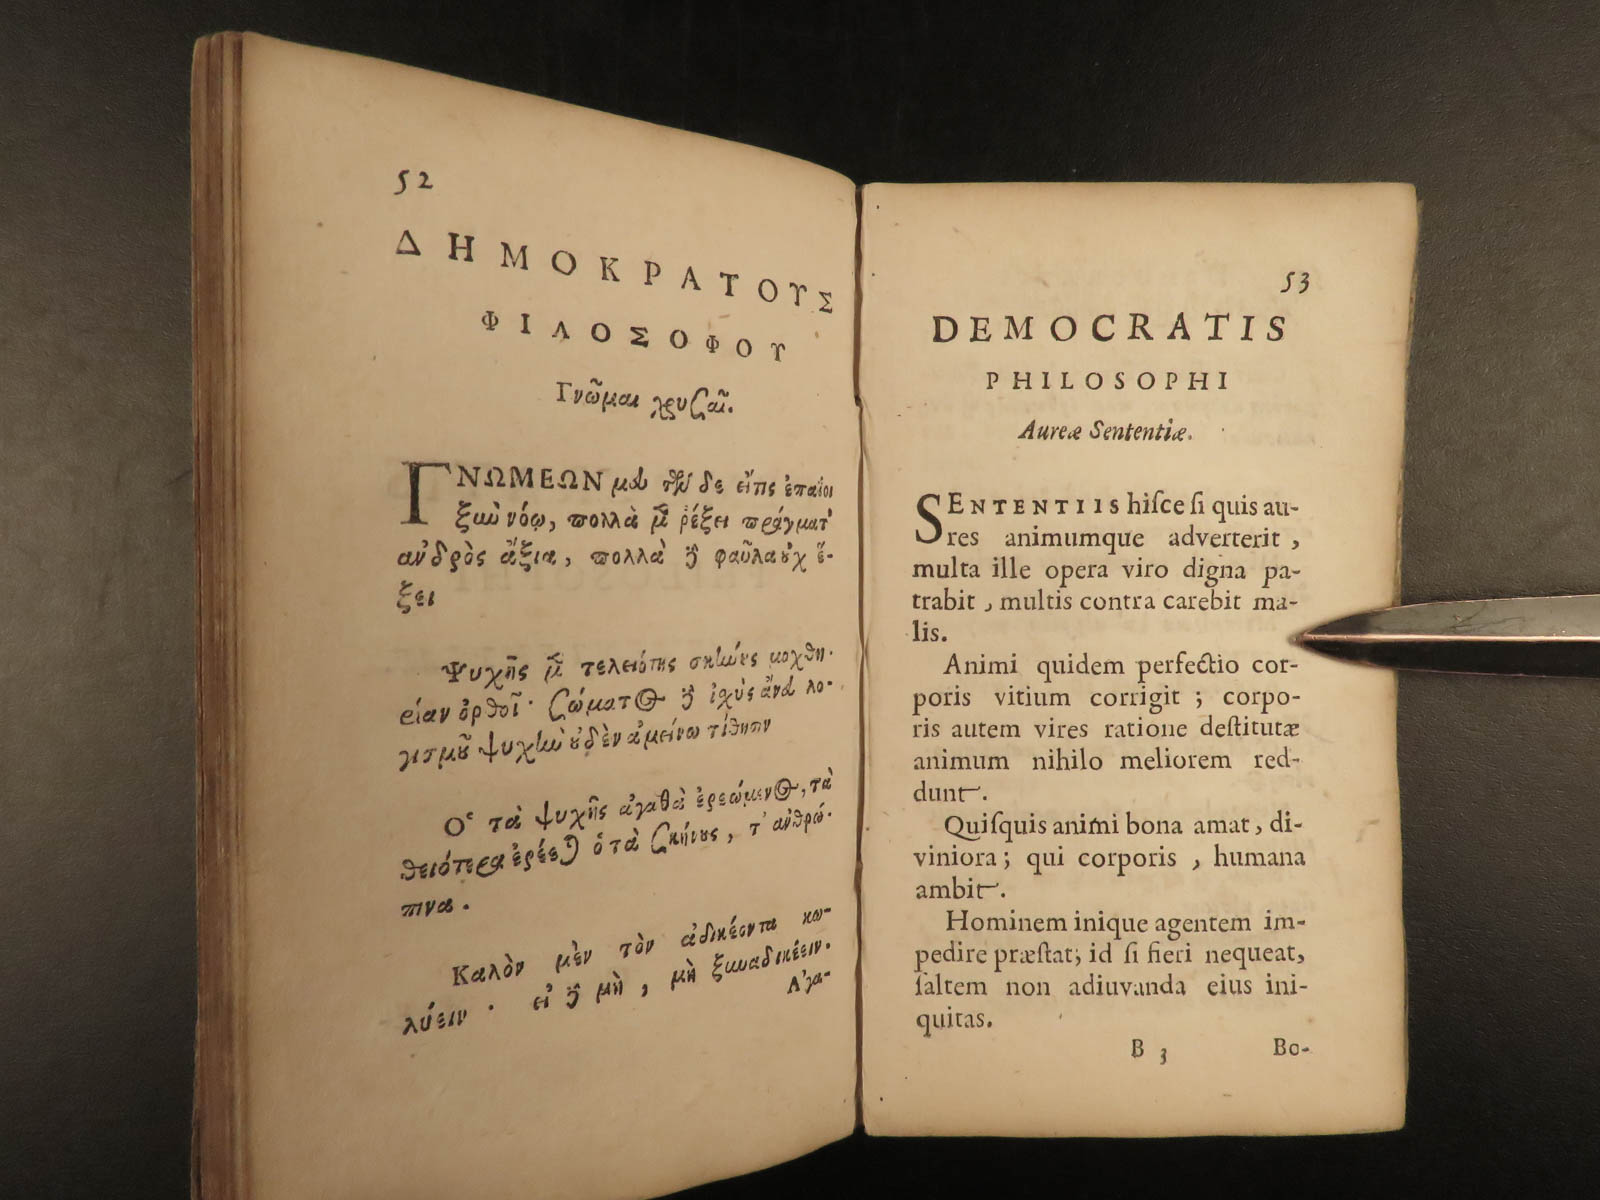 52
ΔΗΜΟΚΡΑΤΟΥΣ
ΦΙΛΟΣΟΦΟΥ
Γνῶμαι χρυσαῖ.
ΓΝΩΜΕΩΝ μευ τῶν δε εἴτις ἐπαΐοι
ξιωὺ νόῳ, πολλὰ μ̃ ῥέξει πράγματ'
ἀνδρὸς ἄξια, πολλὰ ὃ φαῦλα ȣχ ἔ-
ξει
Ψυχῆς μ̃ τελειότης σκήνευς μοχθη-
ρίαν ὀρθοῖ· σώματος ὃ ἰχὺς ἄνευ λο-
γισμοῦ ψυχὴν ȣδὲν ἀμείνω τίθησιν
Ὁ τὰ ψυχῆς ἀγαθὰ ἐρεώμενος, τὰ
θειότερα ἐρέεται ὁ τὰ σκήνευς, τ' ἀνθρώ-
πινα.
Καλὸν μὲν τὸν ἀδικέοντα κω-
λύειν · εἰ ὃ μὴ, μὴ ξυναδικέειν.
Ἀγα-
53
DEMOCRATIS
PHILOSOPHI
Aureæ Sententiæ.
SENTENTIIS hiſce ſi quis au-
res animumque adverterit,
multa ille opera viro digna pa-
trabit, multis contra carebit ma-
lis.
Animi quidem perfectio cor-
poris vitium corrigit ; corpo-
ris autem vires ratione deſtitutæ
animum nihilo meliorem red-
dunt.
Quiſquis animi bona amat, di-
viniora ; qui corporis , humana
ambit.
Hominem inique agentem im-
pedire præſtat; id ſi fieri nequeat,
ſaltem non adiuvanda eius ini-
quitas.
B 3 Bo-